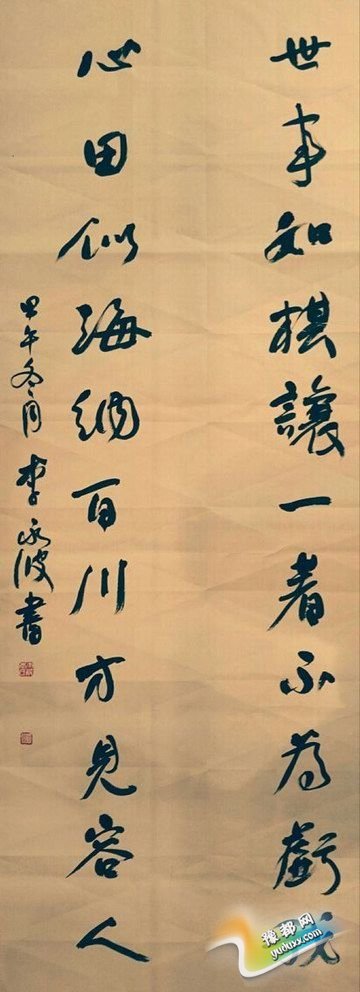 世事如棋讓一着不為虧我
心田似海納百川方見容人
甲午冬月李永波書
豫都网
yuduxx.com